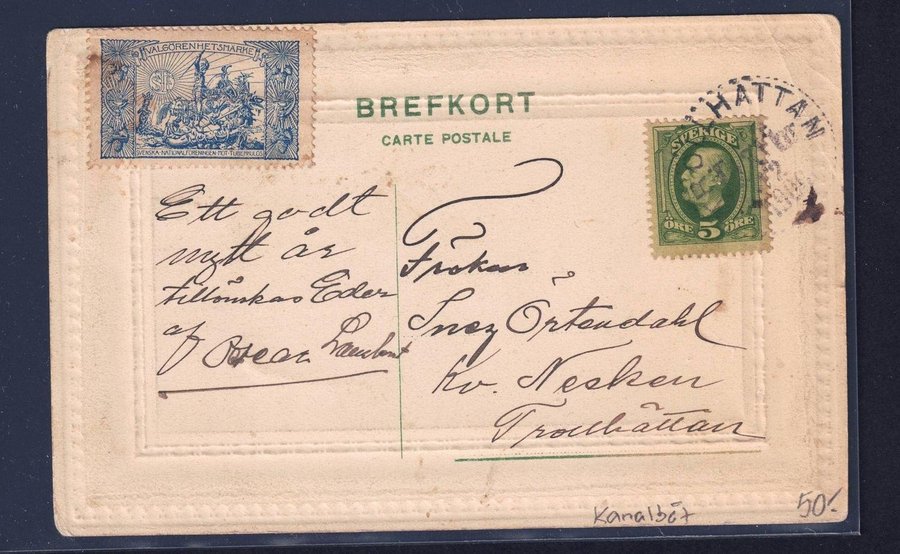 VÄLGÖRENHETSMÄRKE
SVENSKA NATIONALFÖRENINGEN MOT TUBERKULOS
BREFKORT
CARTE POSTALE
LHÄTTAN
SVERIGE
5
ÖRE ÖRE
Ett godt
nytt år
tillönskas Eder
af Oscar
Fröken
Inez Örtendahl
Kv. Nesken
Trollhättan
Kanalbåt
50:-